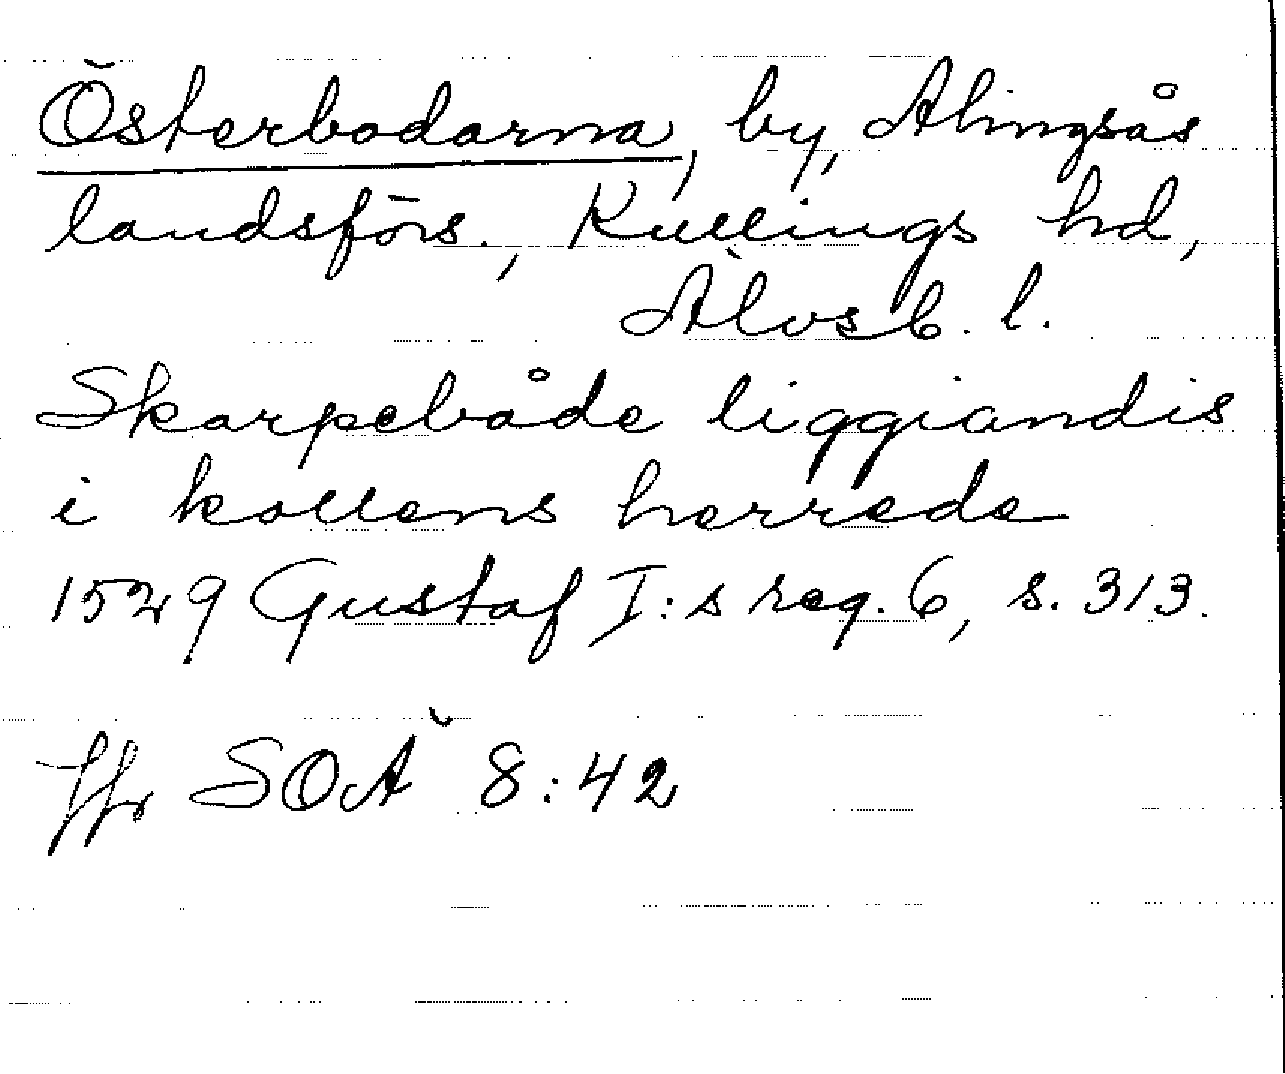 Österbodarna, by, Alingsås
landsförs., Kullings hd,
Älvsb. l.
Skarpebåde liggiandis
i kollens herrede
1529 Gustaf I:s reg. 6, s. 313.
Jfr SOÄ 8:42